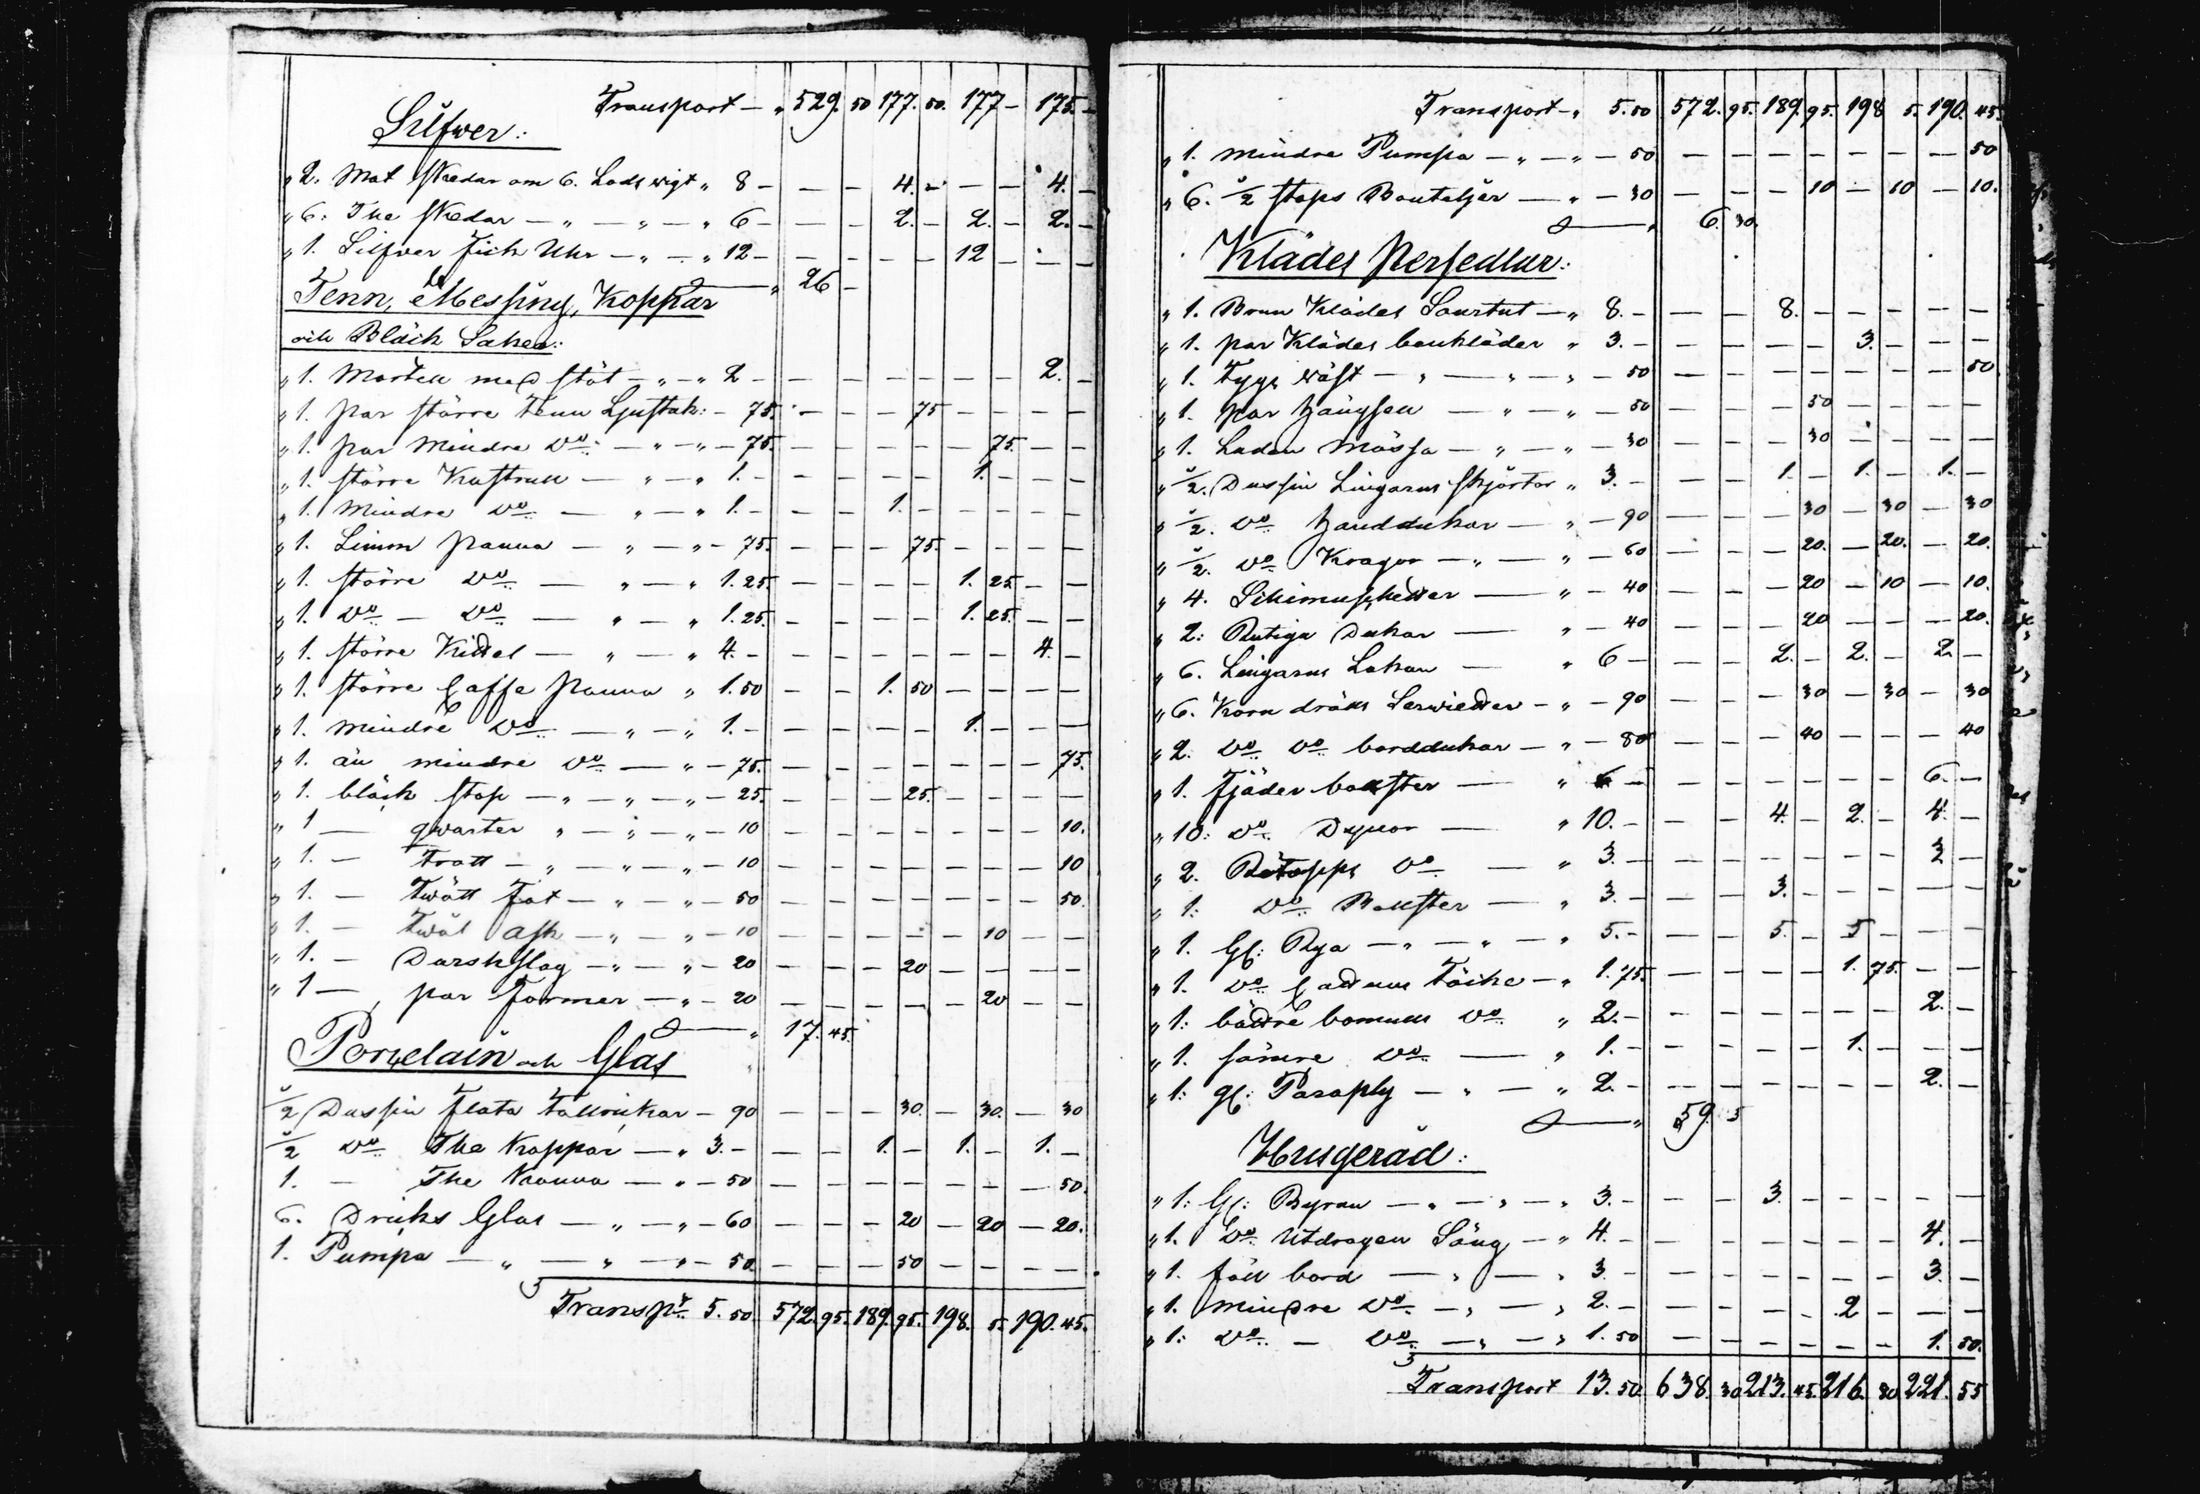 Transport — „ 529. 50 177. 50. 177 — 175. —
Silfwer:
„ 2. Mat skedar om 6. Lods wigt „ 8 — — — 4. — — — 4. —
„ 6: The skedar — „ — „ — „ 6 — — — 2. — 2. — 2. —
„ 1. Silfwer Fick Uhr — „ — „ 12 — — — — — 12 — — —
„ 26 —
Tenn, Messing, Koppar
och Bläck Saker:
„ 1. Mortell med stöt — „ — „ 2 — — — — — — — 2. —
„ 1. par större Tenn Ljustak: — 75. — — — 75 — — — —
„ 1. par Mindre Do: — „ — „ — 75. — — — — — 75. — —
„ 1. större Kastrull — „ — „ 1. — — — — — 1. — — —
„ 1. Mindre Do — „ — „ 1. — — — 1. — — — — —
„ 1. Limm panna — „ — „ — 75. — — — 75. — — — —
„ 1. större Do — „ — „ 1. 25. — — — — 1. 25. — —
„ 1. Do — Do — „ — „ 1. 25. — — — — 1. 25. — —
„ 1. större Kittel — „ — „ 4. — — — — — — — 4. —
„ 1. större Caffe panna „ 1. 50 — — 1. 50 — — — —
„ 1. mindre Do — „ — „ 1. — — — — — 1. — — —
„ 1. än mindre Do — „ — 75. — — — — — — — 75.
„ 1. bläck stop — „ — „ — „ — 25. — — — 25. — — — —
„ 1 — qwarter „ — „ — „ — 10 — — — — — — — 10.
„ 1. — Tratt — „ — „ — „ — 10 — — — — — — — 10
„ 1. — Twätt Fat — „ — „ — 50 — — — — — — — 50.
„ 1. — Twål Ask — „ — „ — 10 — — — — — 10 — —
„ 1. — Darskslag — „ — „ — 20 — — — 20 — — — —
„ 1 — par Former — „ — 20 — — — — — 20 — —
„ 17. 45.
Porzelain och Glas
½ Dussin flata Tallrickar — 90 — — — 30. — 30. — 30
½ Do The Koppar — „ 3. — — — 1. — 1. — 1. —
1. — The Kanna — „ — 50 — — — — — — — 50.
6. Dricks Glas — „ — „ — 60 — — — 20 — 20 — 20.
1. Pumpa — „ — „ — „ — 50. — — — 50 — — — —
Transpt 5. 50. 572. 95. 189. 95. 198. 5. 190. 45.
Transport — „ 5. 50 572. 95. 189. 95. 198 5. 190. 45.
„ 1. mindre Pumpa — „ — „ — 50 — — — — — — — 50
„ 6. ½ stops Bouteljer — „ — 30 — — — 10 — 10 — 10.
„ 6. 30.
Klädes Persedlar:
„ 1. Brun Klädes Sourtut — „ 8. — — — 8. — — — — —
„ 1. par Klädes benkläder „ 3. — — — — — 3. — — —
„ 1. Tygs wäst — „ — „ — „ — 50 — — — — — — — 50.
„ 1. par Hängslen — „ — „ — 50 — — — 50 — — — —
„ 1. Luden Mössa — „ — „ — 30 — — — 30 — — — —
„ ½. Dussin Lingarns skjortor „ 3. — — — 1. — 1. — 1. —
„ ½. Do Handdukar — „ — 90 — — — 30 — 30 — 30
„ ½. Do Kragor — „ — „ — 60 — — — 20. — 20. — 20.
„ 4. — „ — 40 — — — 20 — 10 — 10.
„ 2: Rutiga Dukar — „ — 40 — — — 20 — — — 20.
„ 6. Lingarns Lakan — „ 6 — — — 2. — 2. — 2 —
„ 6. Korn dräll Serwietter — „ — 90 — — — 30 — 30 — 30
„ 2. Do Do borddukar — „ — 80 — — — 40 — — — 40
„ 1. fjäder bolster — „ 6 — — — — — — — 6. —
„ 10: Do Dynor — „ 10. — — — 4. — 2. — 4. —
„ 2. Do — „ 3. — — — — — — — 3 —
„ 1: Do Bolster — „ 3. — — — 3. — — — — —
„ 1. Gl: Rya — „ — „ — „ 5. — — — 5. — 5 — — —
„ 1. Do Cattuns Täcke — „ 1. 75. — — — — 1. 75. — —
„ 1: bättre bomulls Do „ 2. — — — — — — — 2. —
„ 1. sämre Do — „ 1. — — — — — 1. — — —
„ 1: gl: Paraply — „ — „ 2. — — — — — — — 2. —
„ 59. 5
Husgeråd:
„ 1: Gl: Byrau — „ — „ — „ 3. — — — 3. — — — — —
„ 1. Do Utdragen Säng — „ 4. — — — — — — — 4. —
„ 1. fäll bord — „ — „ 3. — — — — — — — 3. —
„ 1. mindre Do — „ — „ 2. — — — — — 2 — — —
„ 1: Do — Do — „ — „ 1. 50 — — — — — — 1. 50.
Transport 13. 50. 638. 30 213. 45. 216. 80 221. 55